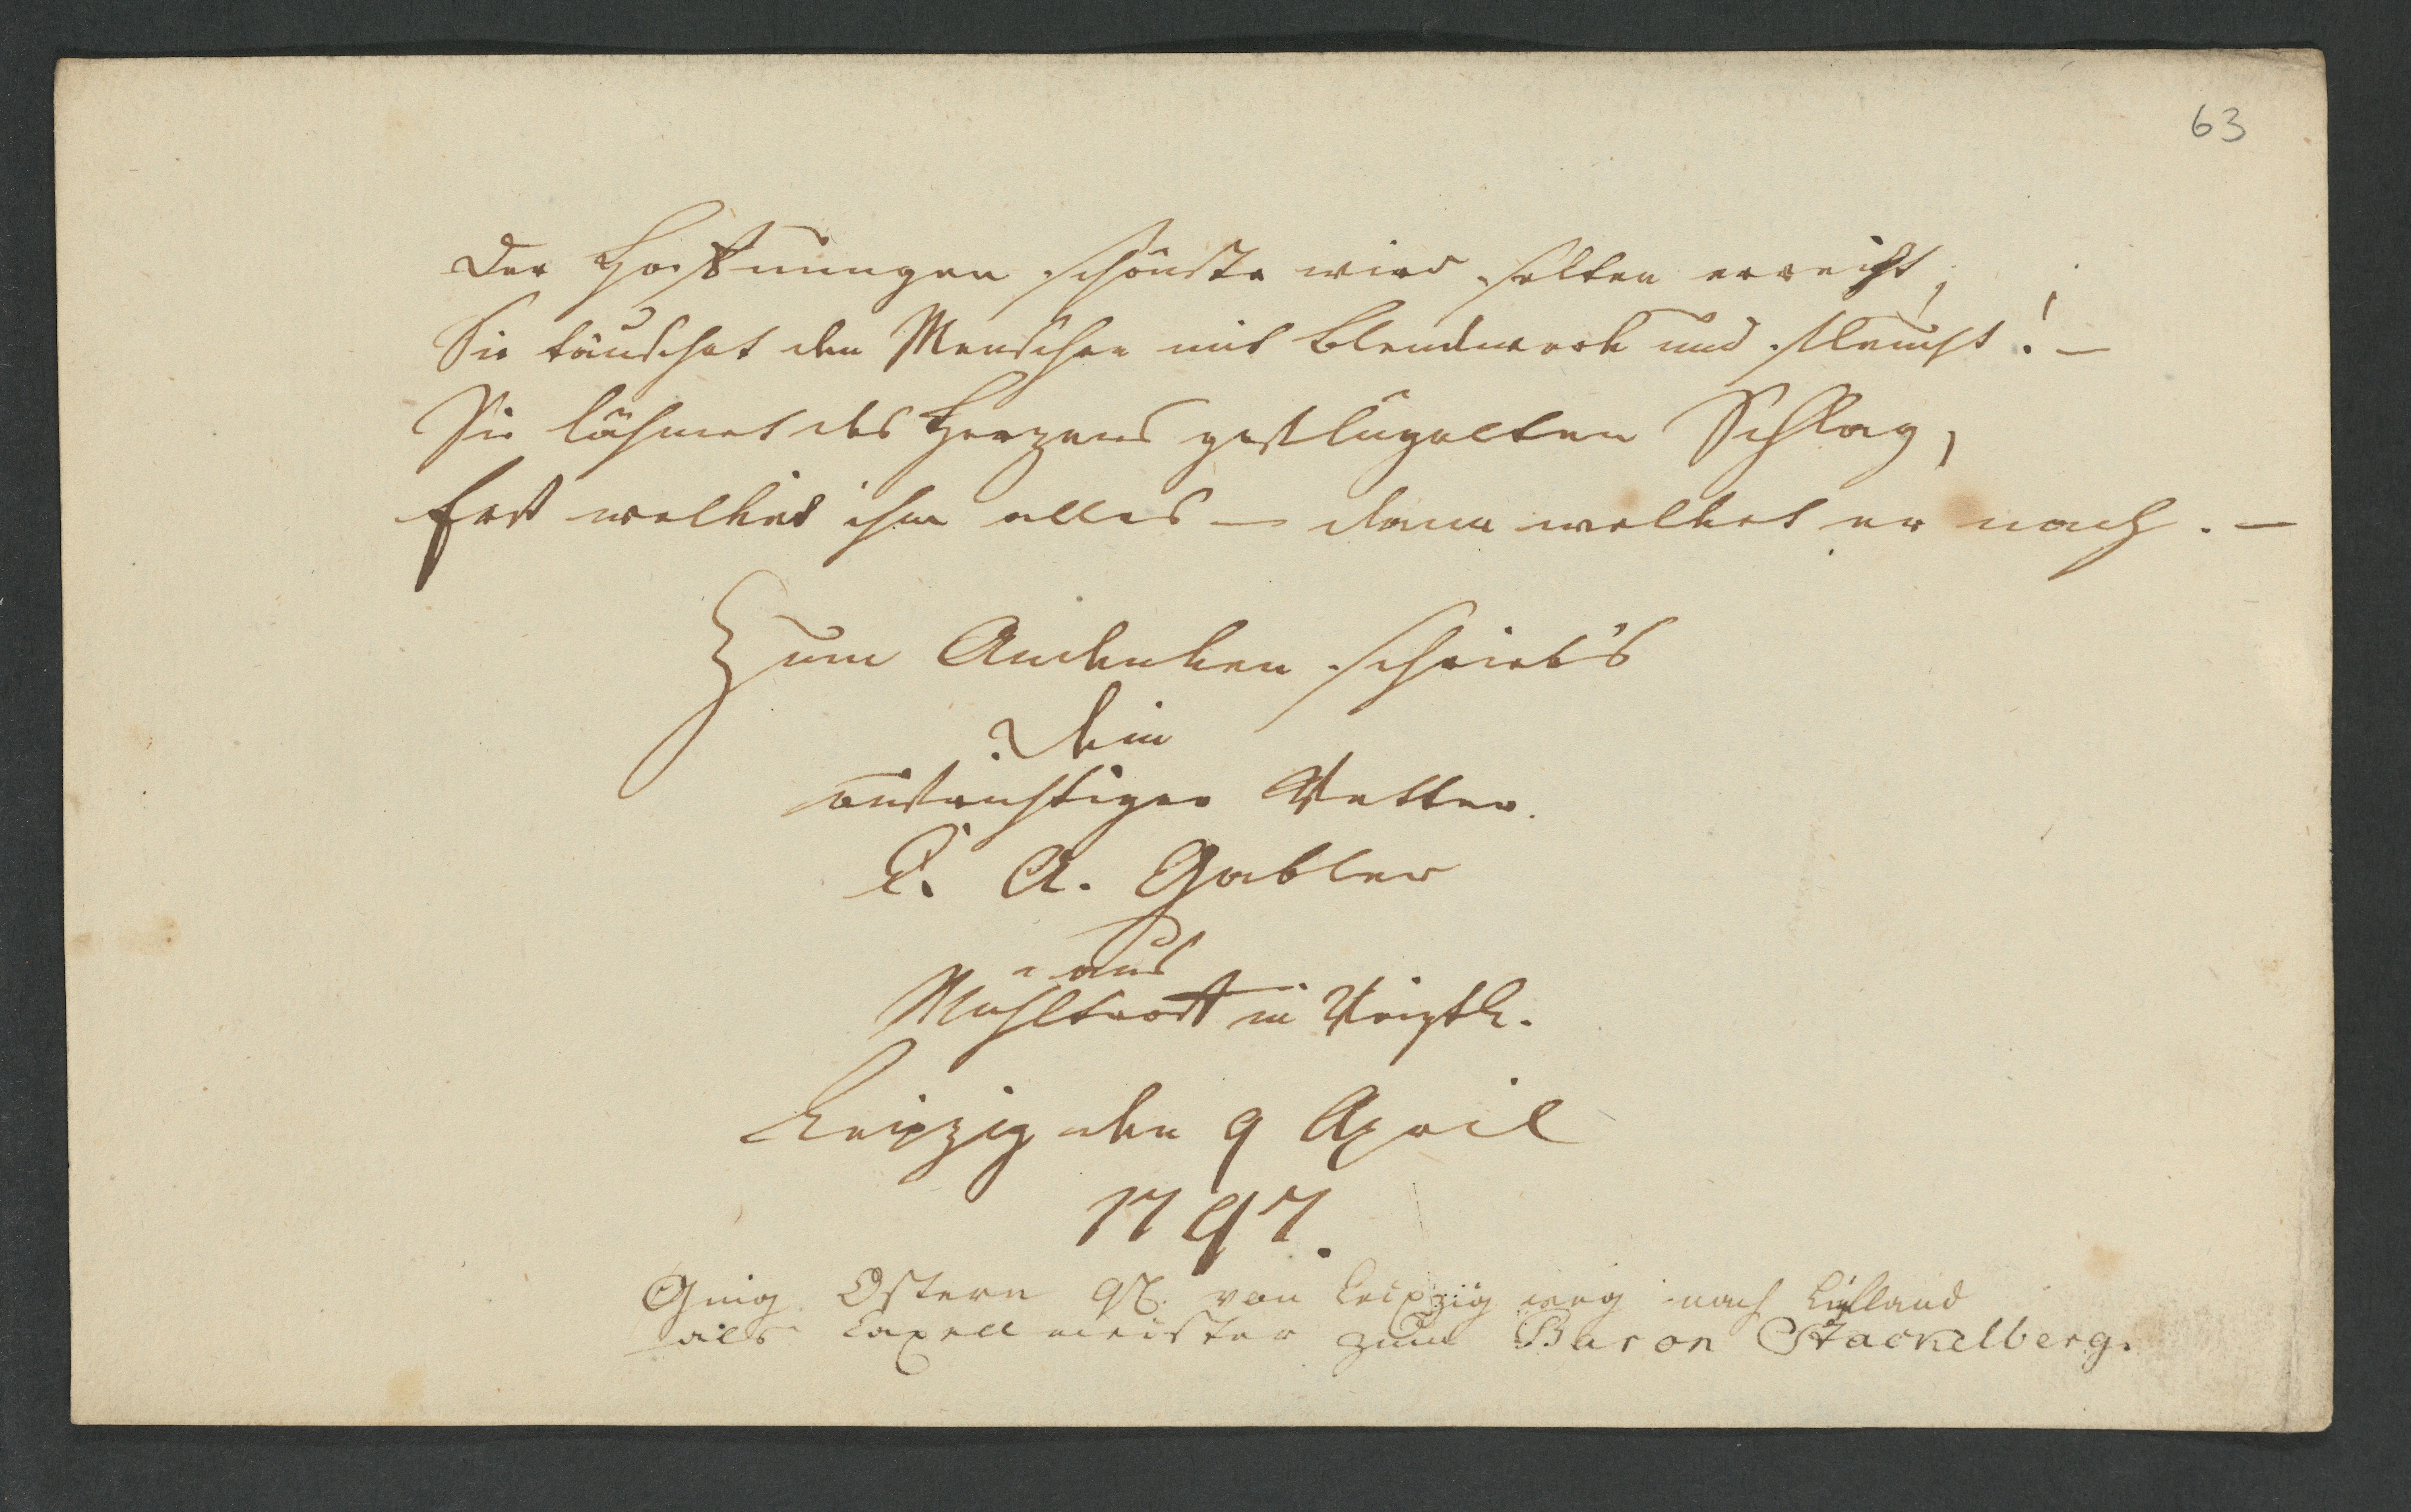 63
Der Hoffnungen schönste wird selten erreicht,
Sie täuschet den Menschen mit Blendwerk und fleucht! –
Sie lähmet des Herzens geflügelten Schlag,
Erst welket ihm alles – dann welket er nach. –
Zum Andenken schrieb's
Dein
aufrichtiger Vetter.
C. A. Gabler
aus
Mühltroff in Voigtl.
Leipzig den 9 April
1797.
Ging Ostern 97. von Leipzig weg nach Liefland
als Capellmeister zum Baron Stackelberg.